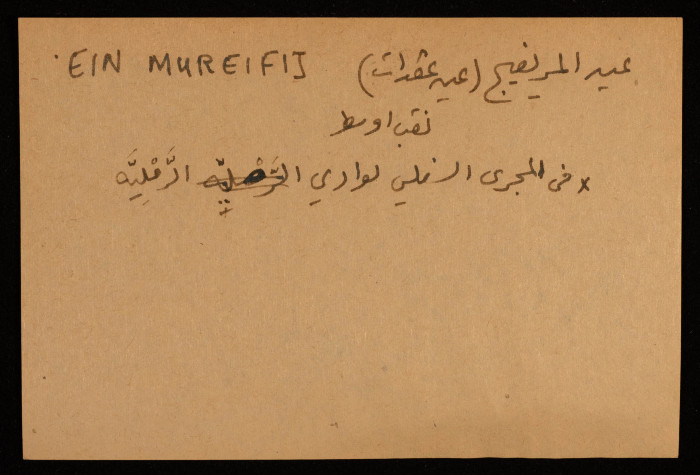 'EIN MUREIFIJ عين المريفيج (عين عقدات)
نقب اوسط
× في المجرى السفلي لوادي الرَّمْلِيَّه